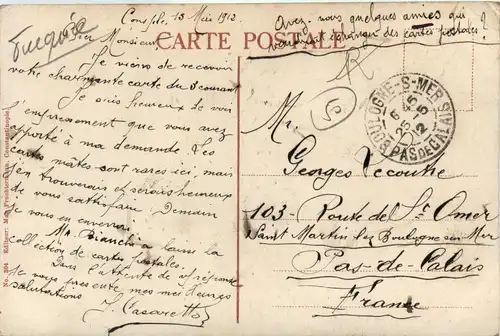 Constple, 13 Mai 1912.
Avez-vous quelques amies qui
voudraient échanger des cartes postales?
Turquie
CARTE POSTALE
Cher Monsieur
Je viens de recevoir
votre charmante carte du 8 courant
Je suis heureux de voir
l'empressement que vous avez
porté à ma demande. Les
cartes mates sont rares ici, mais
j'en trouverais et serais heureux
de vous satisfaire. Demain
je vous en enverrai
Mr. Bianchi a laissé la
collection de cartes postales.
Dans l'attente de
je vous présente mes meilleures
salutations
J. Casaretto
R
5
BOULOGNE-S-MER
PAS DE CALAIS
Mr.
Georges Lecoutre
103 - Route de St Omer
Saint Martin lez Boulogne sur Mer
Pas-de-Calais
France
No. 804 Editeur: Max Fruchtermann, Constantinople